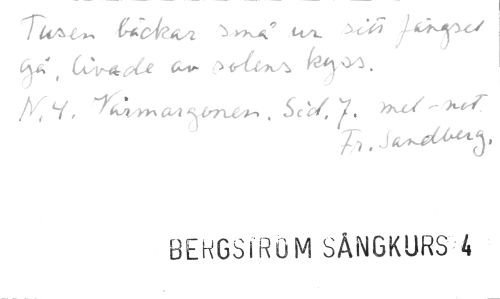 Tusen bäckar små ur sitt fängsel
gå, livade av solens kyss.
N. 4. Vårmorgonen. Sid. 7. mel-not.
Fr. Sandberg.
BERGSTRÖM SÅNGKURS 4